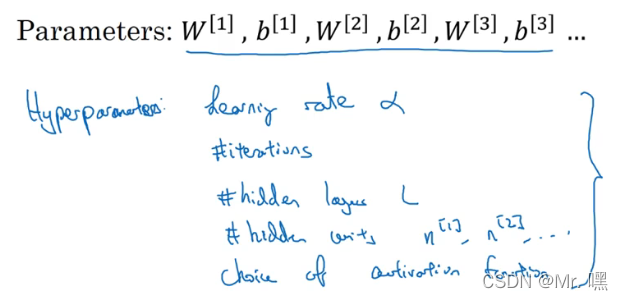 Parameters: W[1] , b[1] , W[2] , b[2] , W[3] , b[3] ...
Hyperparameters: Learning rate α
#iterations
#hidden layers L
# hidden units n[1], n[2], ....
Choice of activation function
CSDN @Mr. 嘿